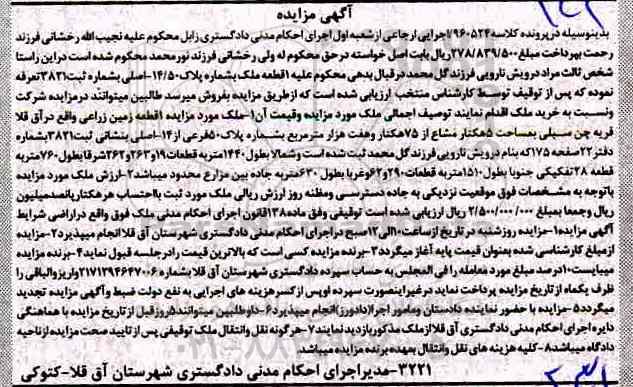 آگهی مزایده
بدینوسیله در پرونده کلاسه ۹۶۰۵۲۴/اجرایی ارجاعی از شعبه اول اجرای احکام مدنی دادگستری زابل محکوم علیه نجیب الله رخشانی فرزند
رحمت بپرداخت مبلغ ۲۷۸/۸۳۹/۵۰۰ ریال بابت اصل خواسته در حق محکوم له ولی رخشانی فرزند نور محمد محکوم شده است در این راستا
شخص ثالث مراد درویش نارویی فرزند گل محمد در قبال بدهی محکوم علیه ۱قطعه ملک بشماره پلاک ۱۴/۵۰-اصلی بشماره ثبت ۳۸۲۱تعرفه
نموده که پس از توقیف توسط کارشناس منتخب ارزیابی شده است که از طریق مزایده بفروش میرسد طالبین میتوانند در مزایده شرکت
ونسبت به خرید ملک اقدام نمایند توصیف اجمالی ملک مورد مزایده وقیمت آن۱-ملک مورد مزایده ۱قطعه زمین زراعی واقع در آق قلا
قریه چن سبلی بمساحت ۵هکتار مشاع از ۷۵هکتار وهفت هزار مترمربع بشماره پلاک ۵۰فرعی از ۱۴-اصلی بنشانی ثبت ۳۸۲۱بشماره
دفتر ۲۲صفحه ۱۷۵که بنام درویش نارویی فرزند گل محمد ثبت شده است وشمالا بطول ۱۴۴۰متربه قطعات ۱۹و۲۶۳و۲۶۲شرقا بطول ۷۶۰متربه
قطعه ۲۸تفکیکی جنوبا بطول ۱۵۱۰متربه قطعات ۲۹۰و۶۲وغربا بطول ۶۳۰متربه جاده بین مزارع محدود میباشد۲-ارزش ملک مورد مزایده
باتوجه به مشخصات فوق موقعیت نزدیکی به جاده دسترسی ومظنه روز ارزش ریالی ملک مورد ثبت بااحتساب هرهکتار پانصدمیلیون
ریال وجمعا بمبلغ ۲/۵۰۰/۰۰۰/۰۰۰ ریال ارزیابی شده است توقیفی وفق ماده ۱۳۸قانون اجرای احکام مدنی ملک فوق واقع در اراضی شرایط
آگهی مزایده۱-مزایده روز شنبه در تاریخ از ساعت ۱۰الی ۱۲صبح در اجرای احکام مدنی دادگستری شهرستان آق قلا انجام میپذیرد۲-مزایده
از مبلغ کارشناسی شده بعنوان قیمت پایه آغاز میگردد۳-برنده مزایده کسی است که بالاترین قیمت را در جلسه قبول نماید۴-برنده مزایده
میبایست ۱۰درصد مبلغ مورد معامله را فی المجلس به حساب سپرده دادگستری شهرستان آق قلا بشماره ۲۱۷۱۲۹۴۶۴۷۰۰۶واریز والباقی را
ظرف یکماه از تاریخ مزایده پرداخت نماید در غیر اینصورت سپرده او پس از کسر هزینه های اجرایی به نفع دولت ضبط وآگهی مزایده تجدید
میگردد۵-مزایده با حضور نماینده دادستان ومامور اجرا(دادورز)انجام میپذیرد۶-داوطلبین میتوانند۵روز قبل از تاریخ مزایده با هماهنگی
دایره اجرای احکام مدنی دادگستری آق قلا از ملک مذکور بازدید نمایند۷-هرگونه نقل وانتقال ملک توقیفی پس از تایید صحت مزایده از ناحیه
دادگاه میباشد۸-کلیه هزینه های نقل وانتقال بعهده برنده مزایده میباشد.
۳۲۲۱-مدیر اجرای احکام مدنی دادگستری شهرستان آق قلا-کتوکی